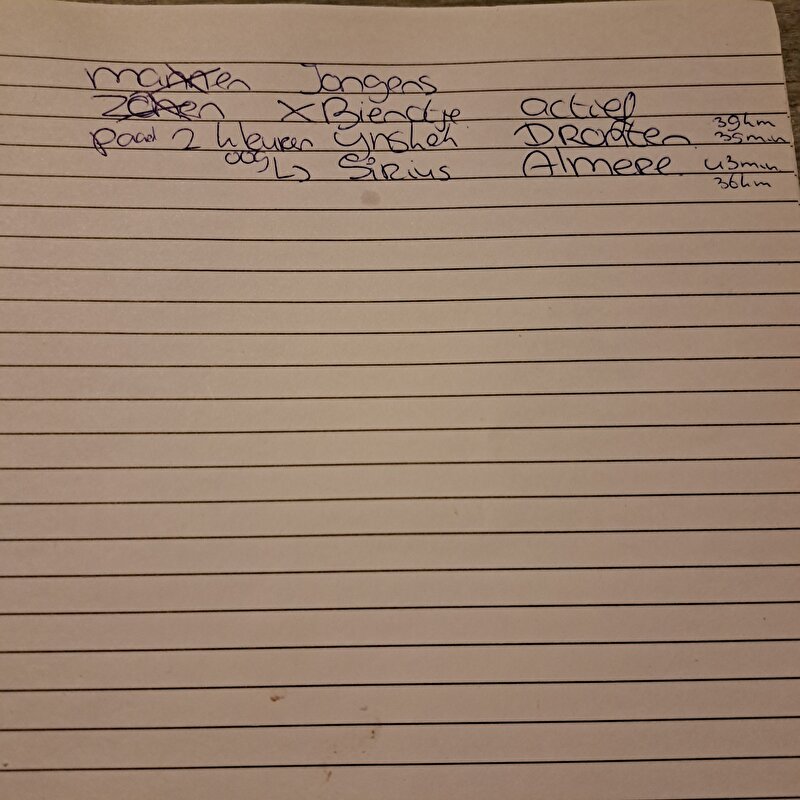 Jongens
X Biendtje actief 39km
paad 2 kleuren Ynskek DRonten 35min
oog ↳ Sirius Almere 43min
36km